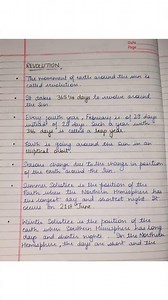 Date
Page
REVOLUTION
• The movement of earth around the sun is
called revolution.
• It takes 365¼ days to revolve around
the sun
• Every fourth year, February is of 29 days
instead of 28 days. Such a year with
366 days is called a leap year
• Earth is going around the sun in an
elliptical orbit
• Seasons change due to the change in position
of the earth around the sun
• Summer Solstice is the position of the
Earth when the Northern Hemisphere has
the longest day and shortest night. It
occurs on 21st June
• Winter Solstice is the position of the
earth when Southern Hemisphere has long
days and shorter nights. In the Northern
Hemisphere, the days are short and the